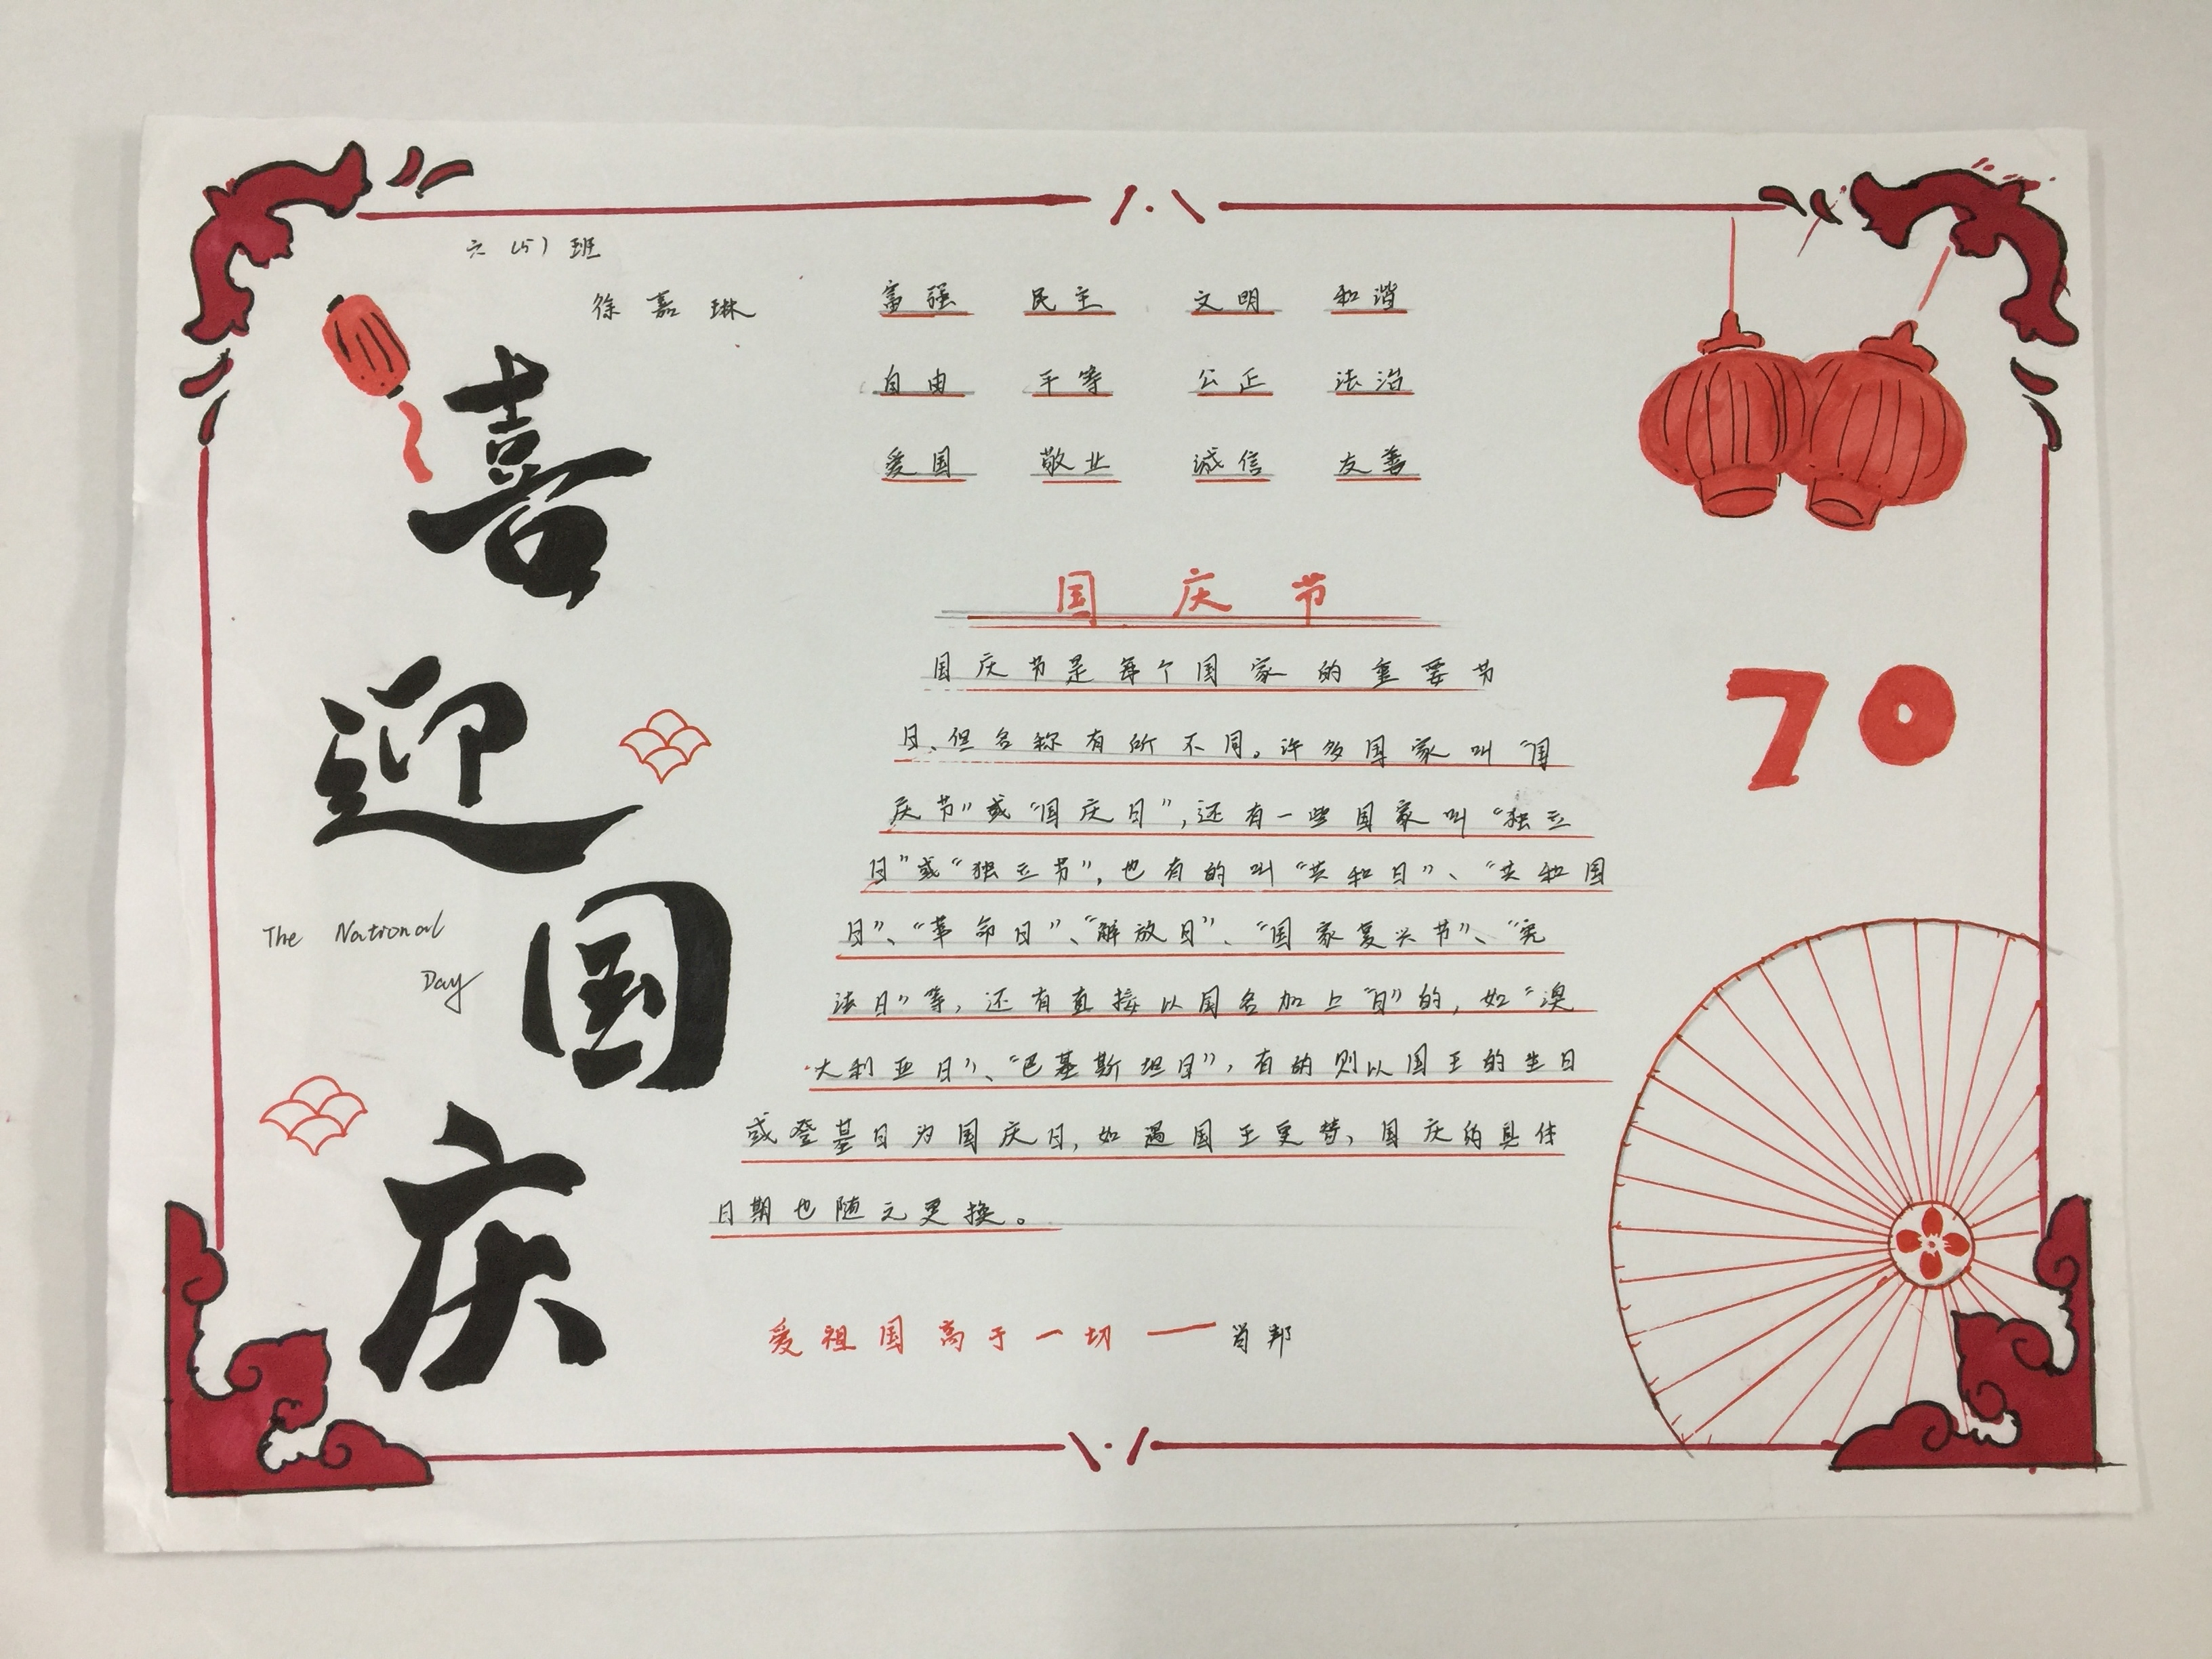 六（5）班
徐嘉琳
喜迎国庆
The National
Day
富强 民主 文明 和谐
自由 平等 公正 法治
爱国 敬业 诚信 友善
国庆节
国庆节是每个国家的重要节
日、但名称有所不同。许多国家叫“国
庆节”或“国庆日”,还有一些国家叫“独立
日”或“独立节”,也有的叫“共和日”、“共和国
日”、“革命日”、“解放日”、“国家复兴节”、“宪
法日”等,还有直接以国名加上“日”的,如“澳
大利亚日”、“巴基斯坦日”,有的则以国王的生日
或登基日为国庆日,如遇国王更替,国庆的具体
日期也随之更换。
爱祖国高于一切 — 肖邦
70